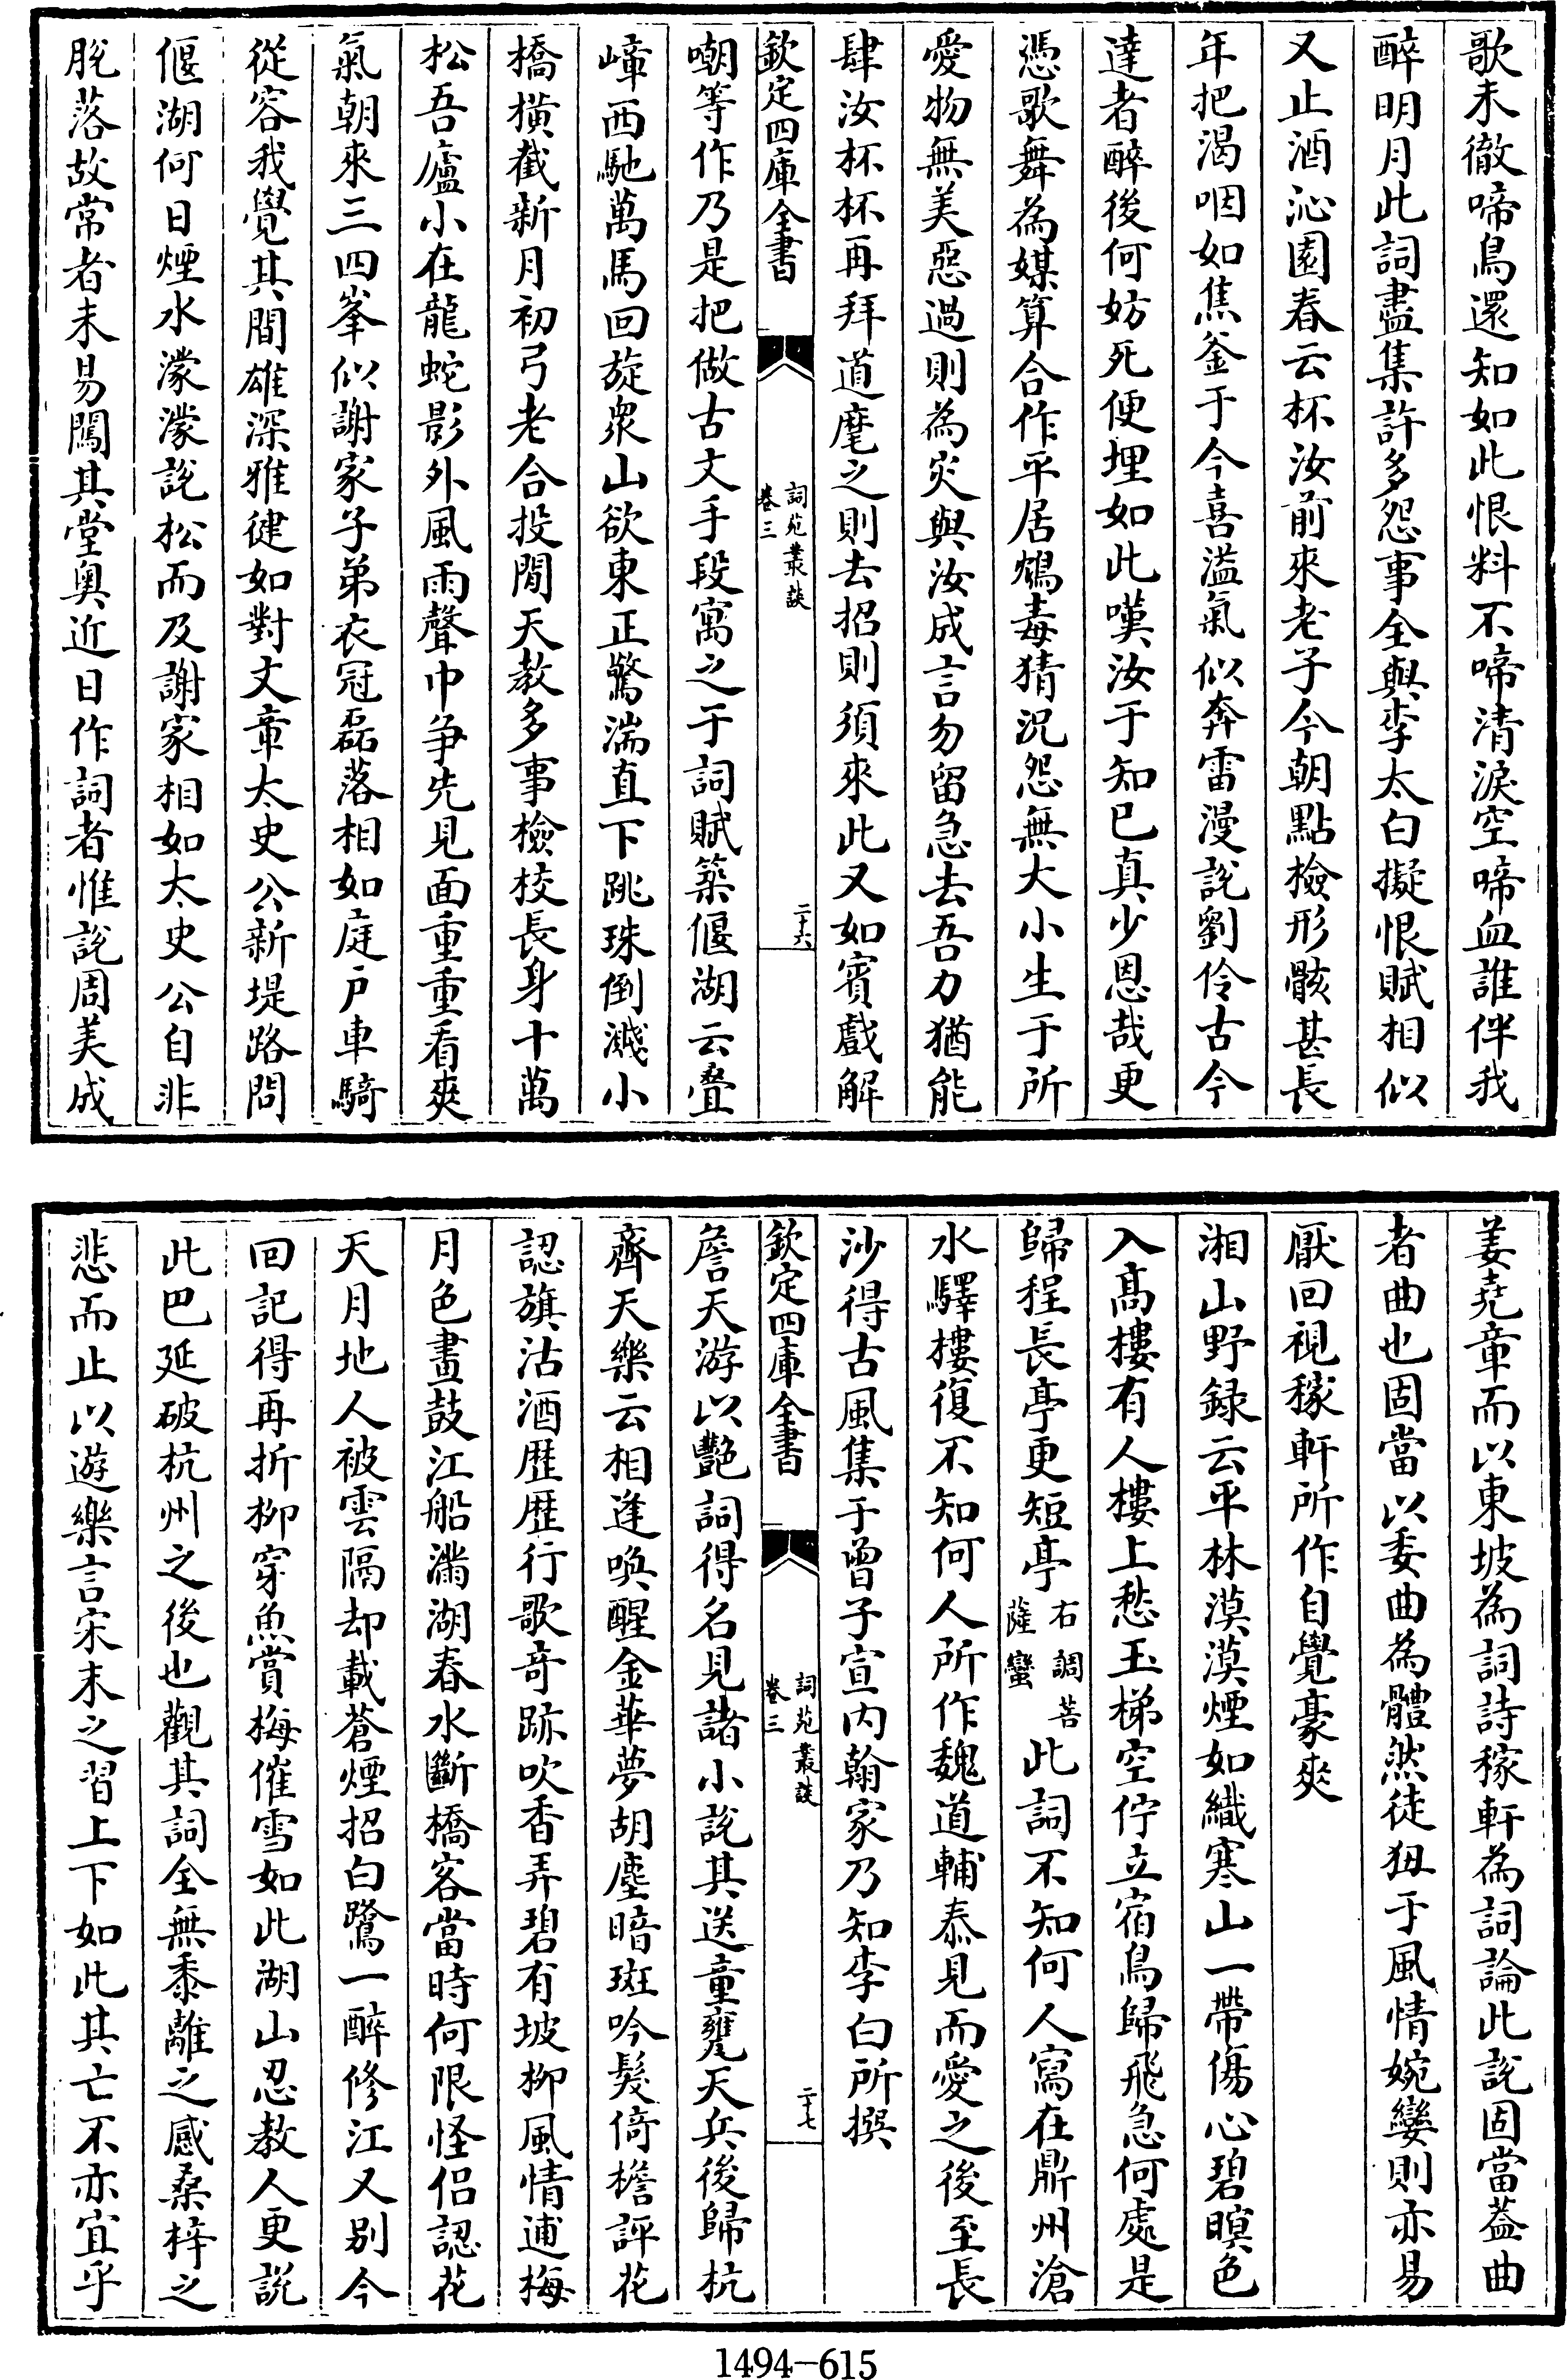 歌未徹啼鳥還知如此恨料不啼清淚空啼血誰伴我
醉明月此詞盡集許多怨事全與李太白擬恨賦相似
又止酒沁園春云杯汝前來老子今朝點檢形骸甚長
年把渴咽如焦釜于今喜溢氣似奔雷漫說劉伶古今
達者醉後何妨死便埋如此嘆汝于知已真少恩哉更
憑歌舞為媒算合作平居鴆毒猜況怨無大小生于所
愛物無美惡過則為災與汝成言勿留急去吾力猶能
肆汝杯杯再拜道麾之則去招則須來此又如賓戲解
欽定四庫全書
詞苑叢談
卷三
二十六
嘲等作乃是把做古文手段寓之于詞賦築偃湖云疊
嶂西馳萬馬回旋衆山欲東正驚湍直下跳珠倒濺小
橋橫截新月初弓老合投閒天教多事檢校長身十萬
松吾廬小在龍蛇影外風雨聲中爭先見面重重看爽
氣朝來三四峯似謝家子弟衣冠磊落相如庭戶車騎
從容我覺其間雄深雅健如對文章太史公新堤路問
偃湖何日煙水濛濛說松而及謝家相如太史公自非
脫落故常者未易闖其堂奧近日作詞者惟說周美成
姜堯章而以東坡為詞詩稼軒為詞論此說固當葢曲
者曲也固當以委曲為體然徒狃于風情婉孌則亦易
厭回視稼軒所作自覺豪爽
湘山野録云平林漠漠煙如織寒山一帶傷心碧暝色
入髙樓有人樓上愁玉梯空佇立宿鳥歸飛急何處是
歸程長亭更短亭右調菩薩蠻此詞不知何人寫在鼎州滄
水驛樓復不知何人所作魏道輔泰見而愛之後至長
沙得古風集于曾子宣内翰家乃知李白所撰
欽定四庫全書
詞苑叢談
卷三
二十七
詹天游以艷詞得名見諸小說其送童甕天兵後歸杭
齊天樂云相逢喚醒金華夢胡塵暗斑吟髮倚檐評花
認旗沽酒歴歴行歌竒跡吹香弄碧有坡柳風情逋梅
月色畫鼓江船滿湖春水斷橋客當時何限怪侣認花
天月地人被雲隔却載蒼煙招白鷺一醉修江又别今
回記得再折柳穿魚賞梅催雪如此湖山忍教人更說
此巴延破杭州之後也觀其詞全無黍離之感桑梓之
悲而止以遊樂言宋末之習上下如此其亡不亦宜乎
1494-615